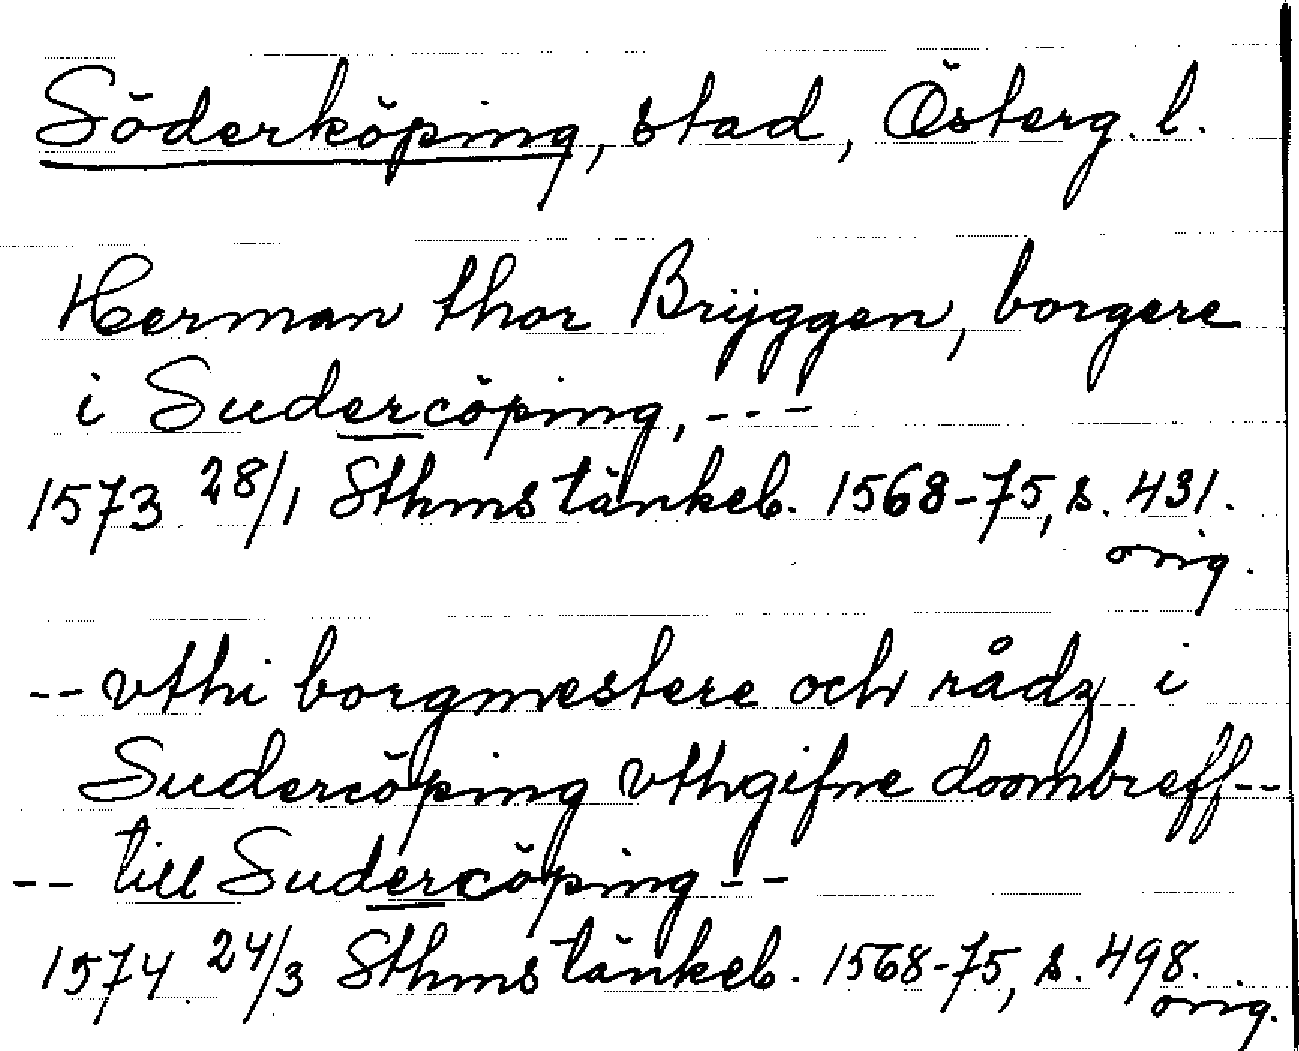 Söderköping, stad, Österg. l.
Herman thor Brÿggen, borgere
i Sudercöping, ---
1573 28/1 Sthms tänkeb. 1568-75, s. 431.
orig.
-- vthi borgmestere och rådz i
Sudercöping vthgifne doombreff --
-- till Sudercöping --
1574 24/3 Sthms tänkeb. 1568-75, s. 498.
orig.